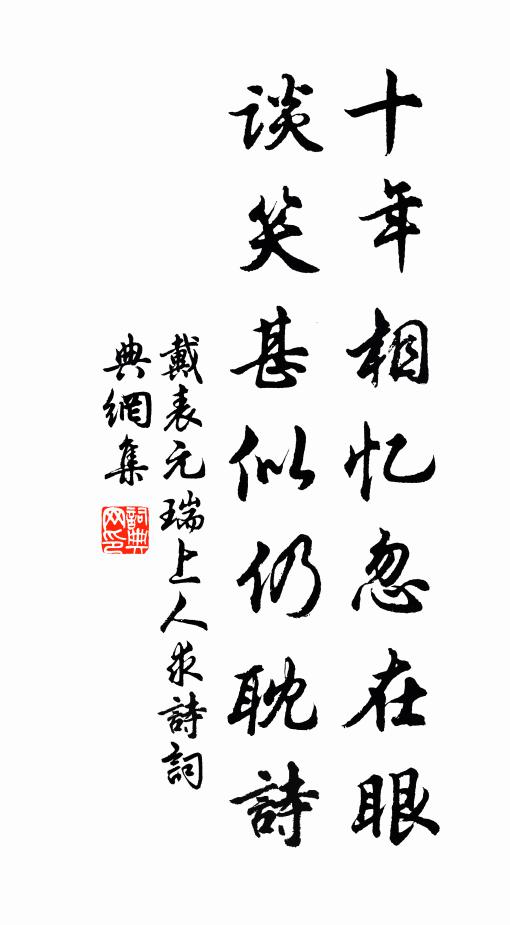 十年相忆忽在眼
谈笑甚似仍耽詩
戴表元瑞上人求詩詞
典網集
詞典网印